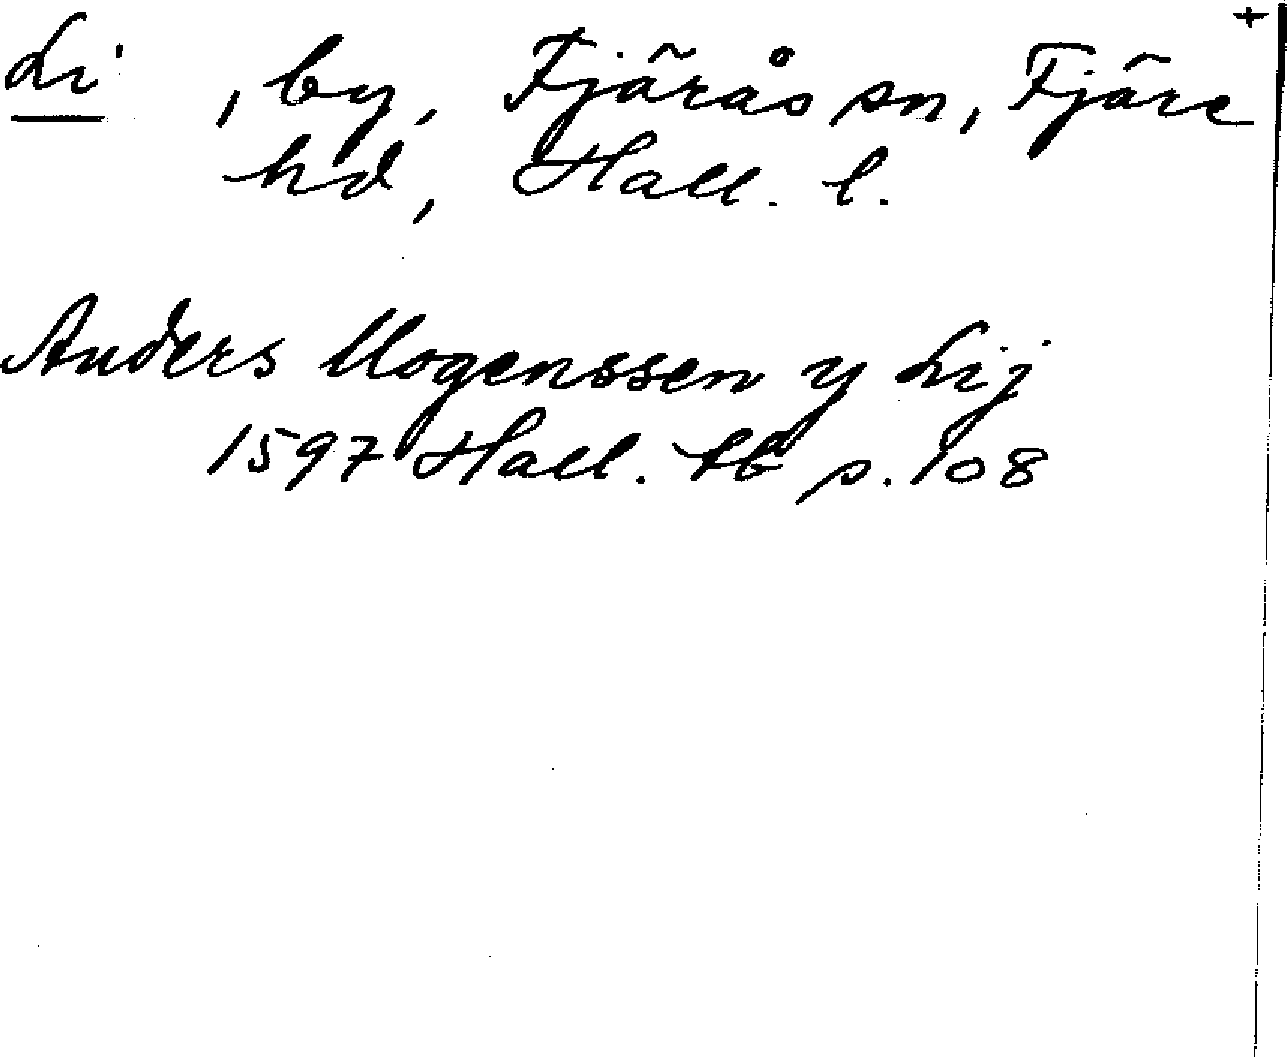 +
Li , by, Fjärås sn, Fjäre
hd, Hall. l.
Anders Mogenssen y Lij
1597 Hall. tb p. 108